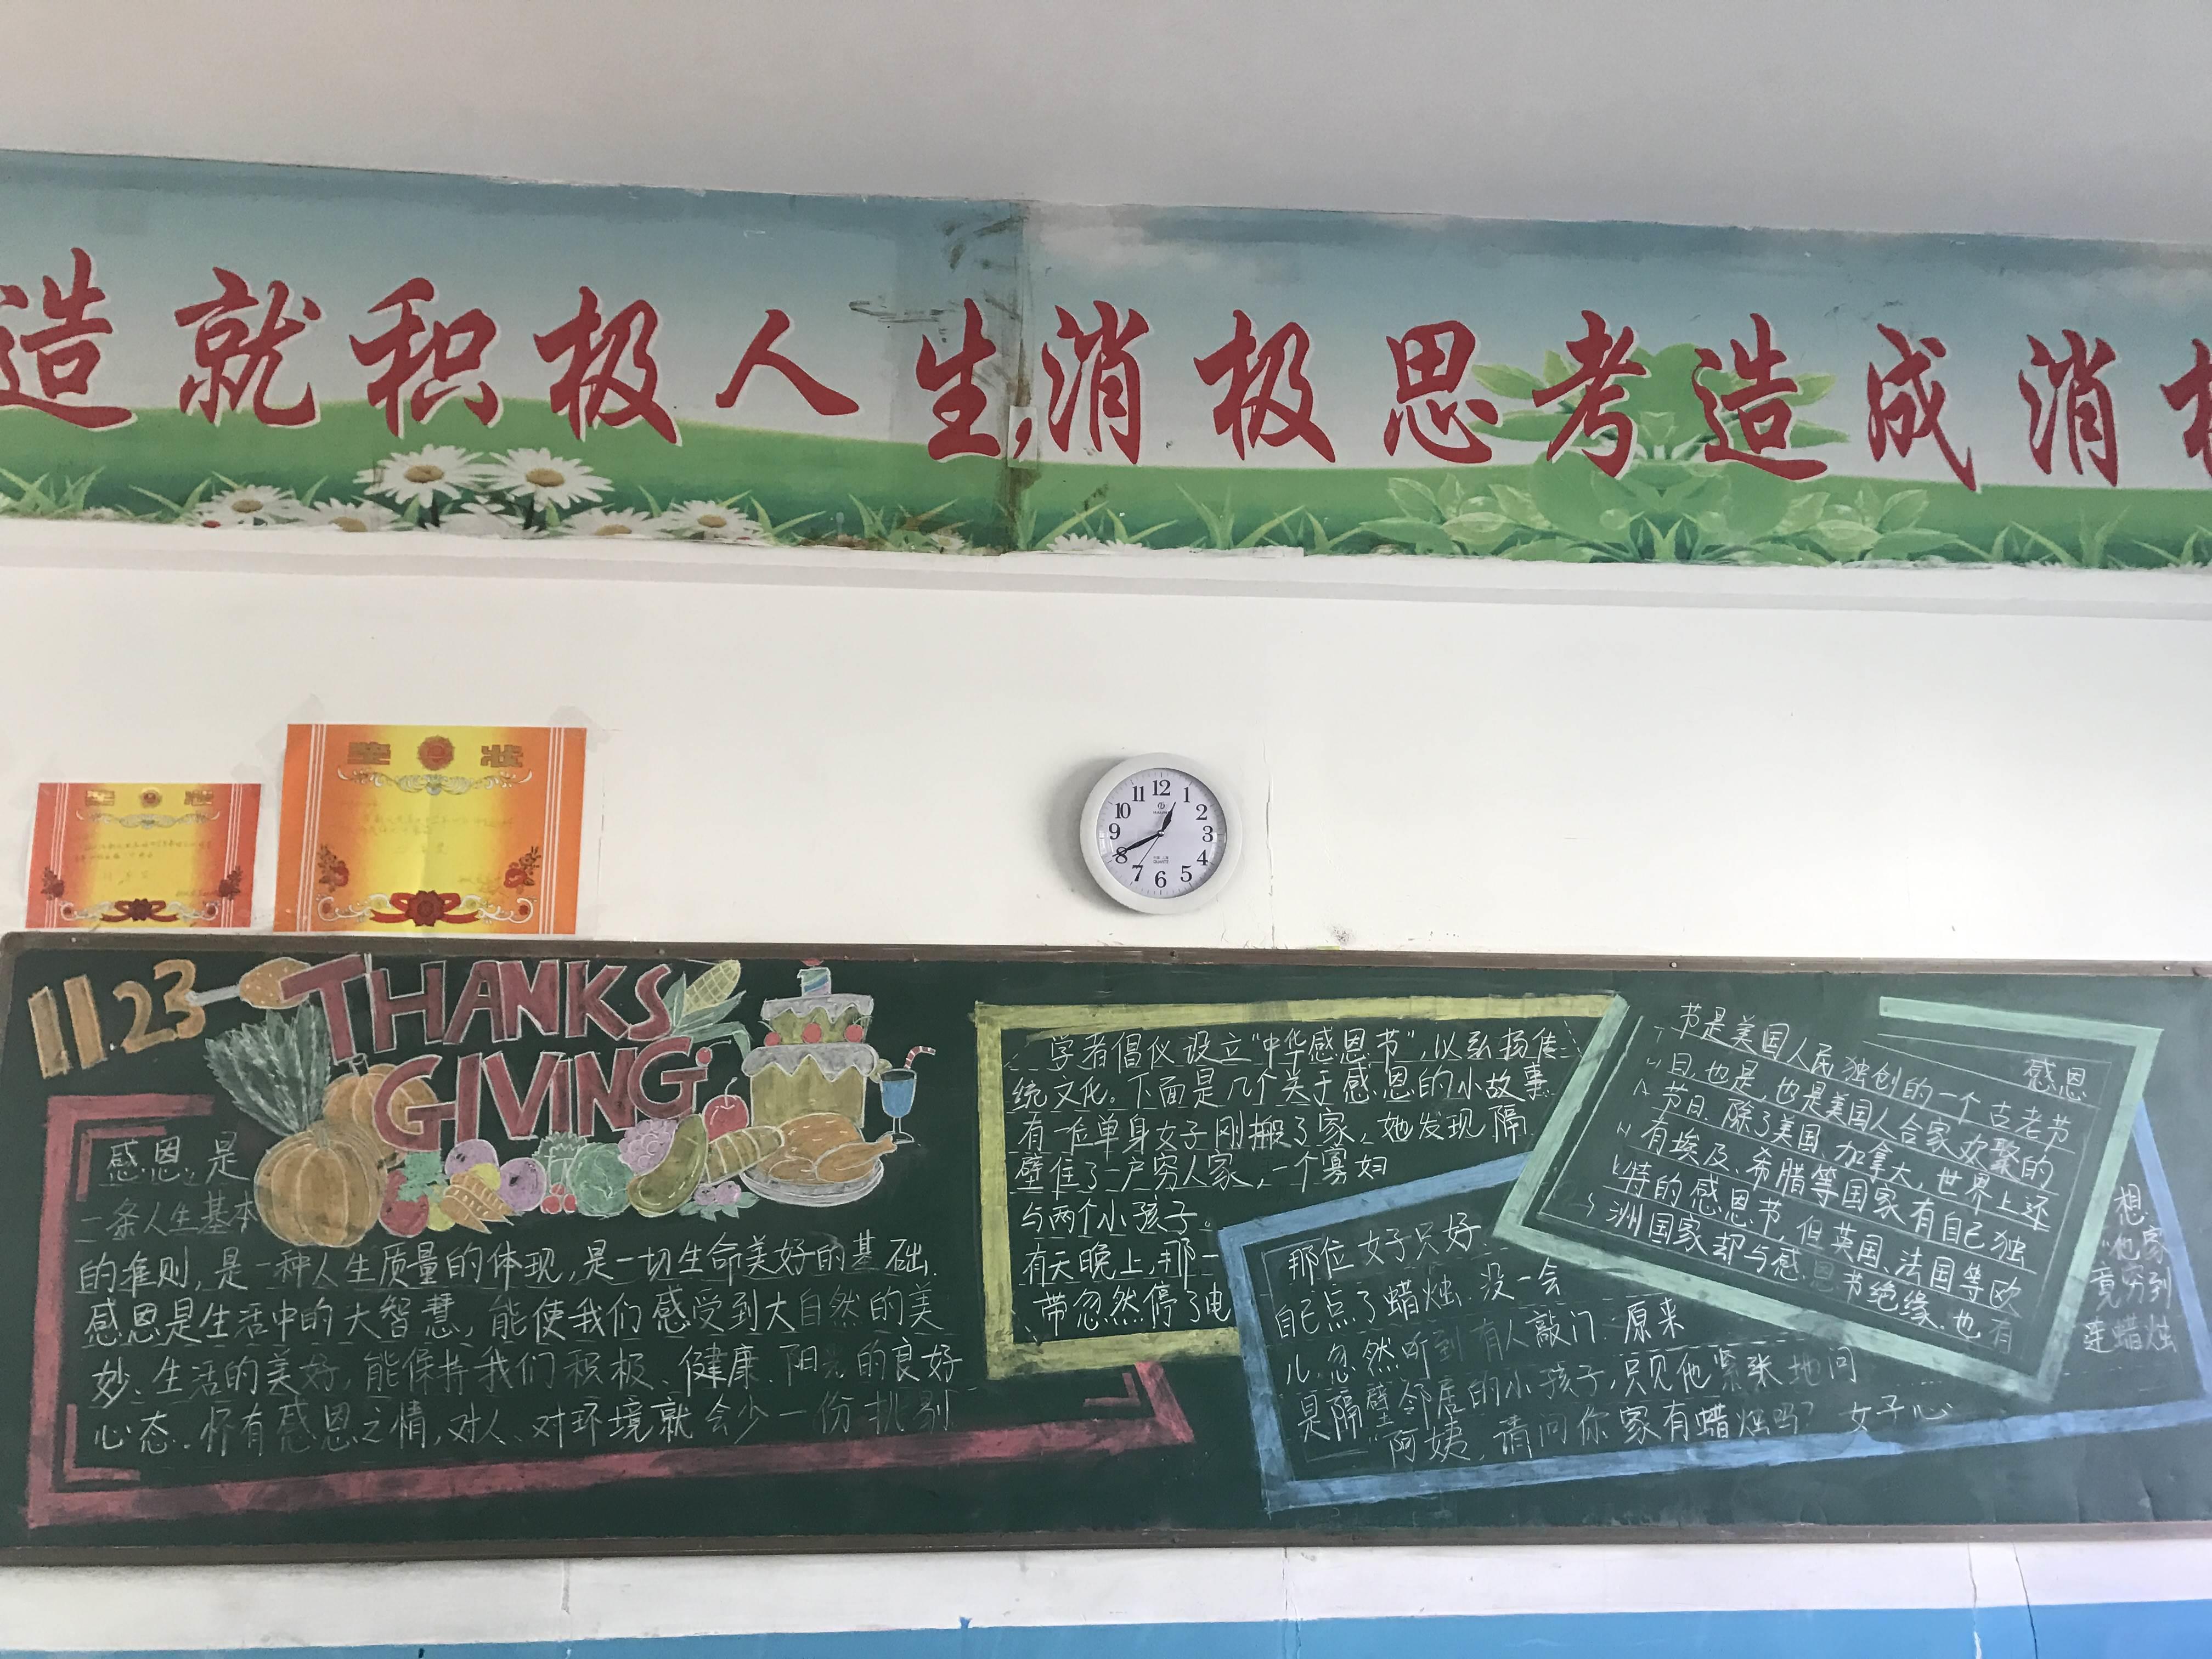 造就积极人生,消极思考造成消极
奖状
奖状
12
1
2
3
4
5
6
7
8
9
10
11
QUARTZ
11.23
THANKS
GIVING
感恩,是
一条人生基本
的准则,是一种人生质量的体现,是一切生命美好的基础.
感恩是生活中的大智慧,能使我们感受到大自然的美
妙、生活的美好,能保持我们积极、健康、阳光的良好
心态.怀有感恩之情,对人、对环境就会少一份挑剔
学者倡仪设立“中华感恩节”,以弘扬传
统文化。下面是几个关于感恩的小故事.
有一位单身女子刚搬了家,她发现隔
壁住了一户穷人家,一个寡妇
与两个小孩子。
有天晚上,那一
带忽然停了电
那位女子只好
自己点了蜡烛.没一会
儿,忽然听到有人敲门.原来
是隔壁邻居的小孩子,只见他紧张地问
“阿姨,请问你家有蜡烛吗?”女子心
想
“他家
竟穷到
连蜡烛
感恩
节是美国人民独创的一个古老节
日,也是,也是美国人合家欢聚的
节日.除了美国、加拿大,世界上还
有埃及、希腊等国家有自己独
特的感恩节,但英国、法国等欧
洲国家却与感恩节绝缘.也有